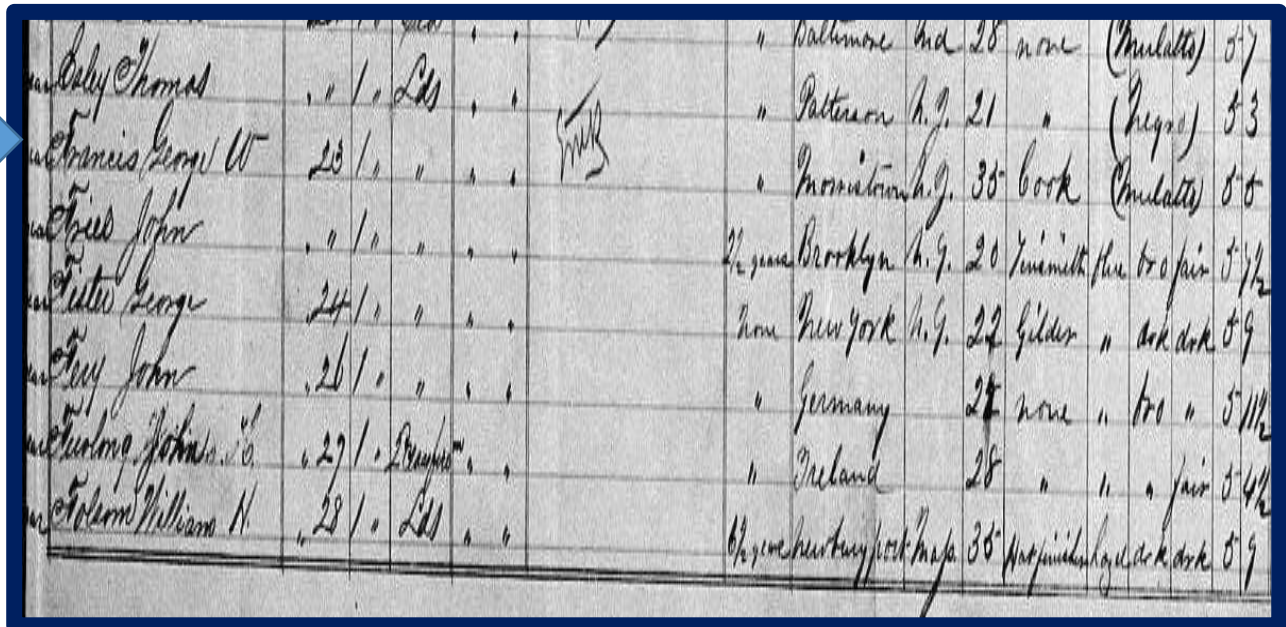 " Baltimore Md 28 none (Mulatto) 5 7
Coley Thomas " 1 " Lds " " " Patterson N.J. 21 " (Negro) 5 3
Francis George W 23 1 " " " " " Morristown N.J. 35 Cook (Mulatto) 5 5
Fries John " 1 " " " " 2½ years Brooklyn N.Y. 20 Tinsmith blue bro fair 5 7½
Fister George 24 1 " " " " None New York N.Y. 22 Gilder " drk drk 5 9
Fey John 26 1 " " " " " Germany 21 none " bro " 5 11½
Furlong John 27 1 " " " " Ireland 28 " " " fair 5 4½
Folsom William H. 28 1 " Lds " " Newburyport Mass 35 drk drk 5 9